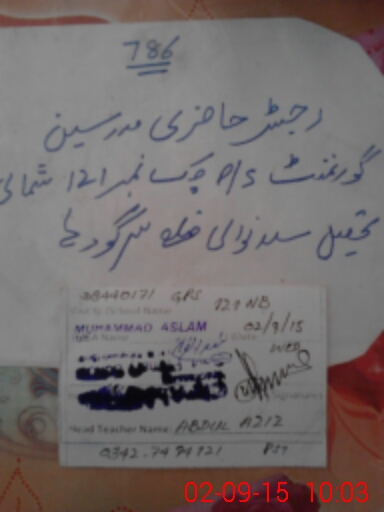 786
رجسٹر حاضری مدرسین
گورنمنٹ P/S چک نمبر 121 شمالی
تحصیل سلانوالی ضلع سرگودہا
38440171 GPS 121 NB
Visit to School Name
MUHAMMAD ASLAM 02/9/15
MEA Name Date
WED
Signatures
Head Teacher Name: ABDUL AZIZ
0342.7474721 PST
02-09-15 10:03